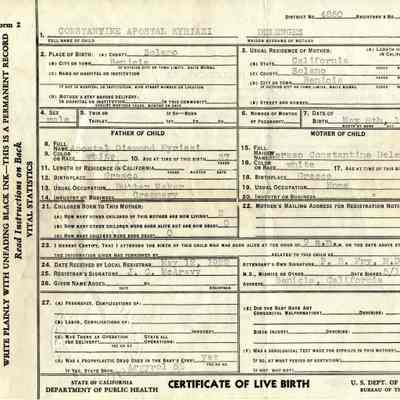 orm 2
DISTRICT NO. 4860 REGISTRAR'S NO.
1. CONSTANTINE APOSTAL KYRIAZI
FULL NAME OF CHILD MAIDEN SURNAME OF MOTHER
2. PLACE OF BIRTH: (A) COUNTY Solano
(B) CITY OR TOWN Benicia
IF OUTSIDE CITY OR TOWN LIMITS, WRITE RURAL
(C) NAME OF HOSPITAL OR INSTITUTION
IF NOT IN HOSPITAL OR INSTITUTION, GIVE STREET NUMBER OR LOCATION
(D) MOTHER'S STAY BEFORE DELIVERY:
IN HOSPITAL OR INSTITUTION IN THIS COMMUNITY
3. USUAL RESIDENCE OF MOTHER:
(A) STATE California
(B) COUNTY Solano
(C) CITY OR TOWN Benicia
IF OUTSIDE CITY OR TOWN LIMITS, WRITE RURAL
(D) STREET AND NUMBER
4. SEX male
5. TWIN OR TRIPLET
IF SO—BORN
6. NUMBER OF MONTHS OF PREGNANCY
7. DATE OF BIRTH May 8th,
FATHER OF CHILD
8. FULL NAME Apostal Diamond Kyriazi
9. COLOR OR RACE white 10. AGE AT TIME OF THIS BIRTH 37 YRS.
11. LENGTH OF RESIDENCE IN CALIFORNIA
12. BIRTHPLACE Greece
13. USUAL OCCUPATION Butter Maker
14. INDUSTRY OR BUSINESS Creamery
MOTHER OF CHILD
15. FULL MAIDEN NAME Constantine
16. COLOR OR RACE white 17. AGE AT TIME OF
18. BIRTHPLACE Greece
19. USUAL OCCUPATION Home
20. INDUSTRY OR BUSINESS
21. CHILDREN BORN TO THIS MOTHER:
(A) HOW MANY OTHER CHILDREN OF THIS MOTHER ARE NOW LIVING? 2
(B) HOW MANY OTHER CHILDREN WERE BORN ALIVE BUT ARE NOW DEAD? 0
(C) HOW MANY CHILDREN WERE BORN DEAD? 0
22. MOTHER'S MAILING ADDRESS FOR REGISTRATION NOTICE
23. I HEREBY CERTIFY, THAT I ATTENDED THE BIRTH OF THIS CHILD WHO WAS BORN ALIVE AT THE HOUR OF 2 a.m. ON THE DATE ABOVE
THE INFORMATION GIVEN WAS FURNISHED BY RELATED TO THIS CHILD AS
24. DATE RECEIVED BY LOCAL REGISTRAR May 12,
25. REGISTRAR'S SIGNATURE
26. GIVEN NAMES ADDED BY
REGISTRAR
ATTENDANT'S OWN SIGNATURE M.D.
M.D., MIDWIFE OR OTHER DATE SIGNED
ADDRESS Benicia, California
27. (A) PREGNANCY, COMPLICATIONS OF:
(B) LABOR, COMPLICATIONS OF:
(C) WAS THERE AN OPERATION FOR DELIVERY? STATE ALL OPERATIONS:
(D) WAS A PROPHYLACTIC DRUG USED IN THE BABY'S EYES? yes
IF YES, STATE DRUG Argyrol
(E) DID THE BABY HAVE ANY CONGENITAL MALFORMATION? DESCRIBE:
BIRTH INJURY? DESCRIBE:
(F) WAS A SEROLOGICAL TEST MADE FOR SYPHILIS IN THIS
IF SO, AT WHAT PERIOD OF GESTATION?
IF NOT, WHY NOT?
STATE OF CALIFORNIA
DEPARTMENT OF PUBLIC HEALTH
CERTIFICATE OF LIVE BIRTH
U. S. DEPT. OF
BUREAU OF
WRITE PLAINLY WITH UNFADING BLACK INK—THIS IS A PERMANENT RECORD
Read Instructions on Back
VITAL STATISTICS